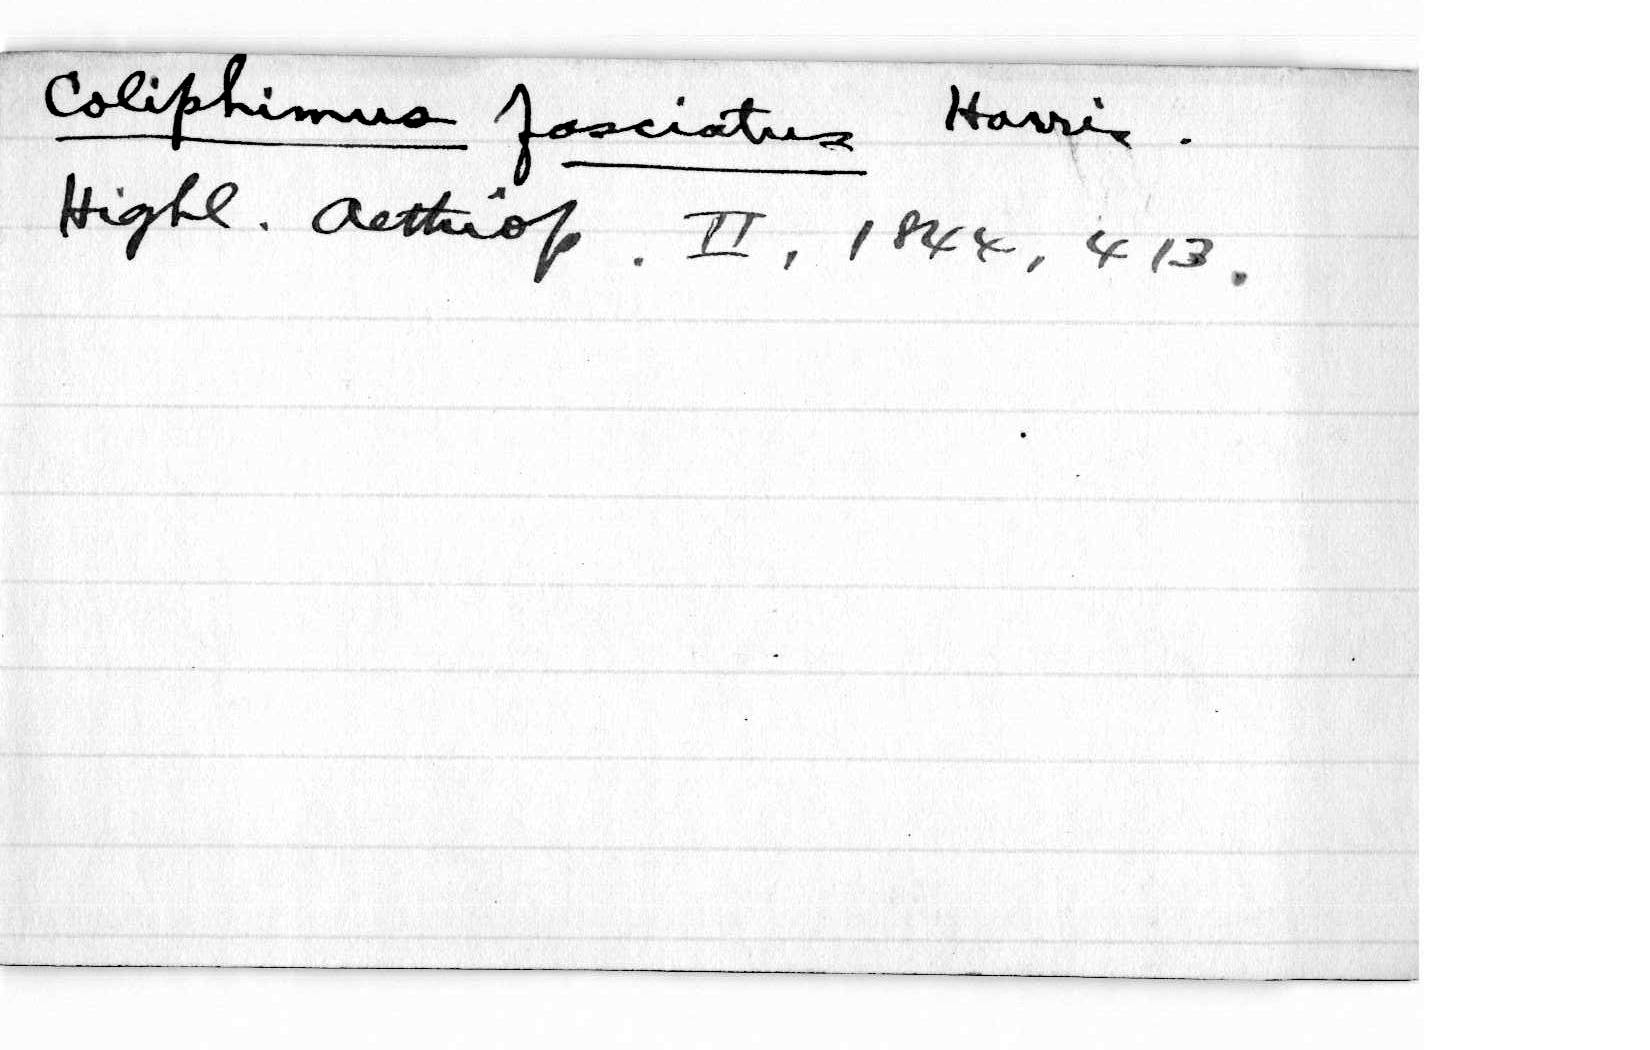 Coliphimus fasciatus Harris.
Highl. Aethiop. II, 1844, 413.